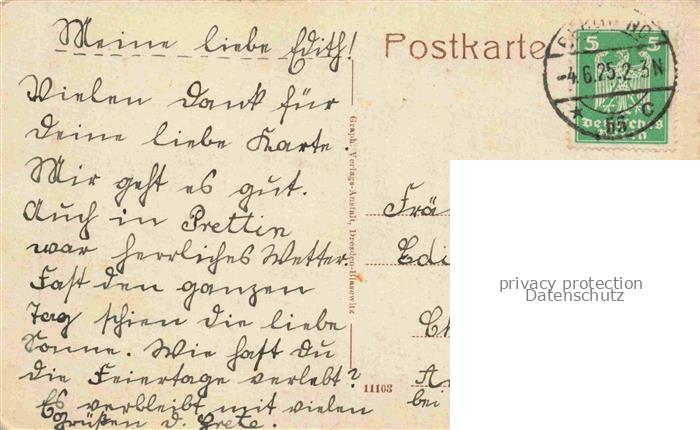 Meine liebe Edith!
Postkarte
Vielen Dank für
Deine liebe Karte.
Mir geht es gut.
Auch in Prettin
war herrliches Wetter.
Fast den ganzen
Tag schien die liebe
Sonne. Wie hast Du
die Feiertage verlebt?
Es verbleibt mit vielen
Grüßen d. Grete.
Graph. Verlags-Anstalt, Dresden-Blasewitz
11103
5 5
-4.6.25.2-3N
Deutsches
Reich
Frä
Edi
bei
privacy protection
Datenschutz